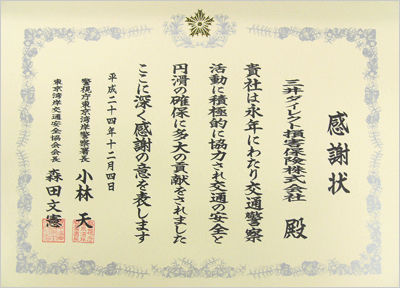 感謝状
三井ダイレクト損害保険株式会社
殿
貴社は永年にわたり交通警察
活動に積極的に協力され交通の安全と
円滑の確保に多大の貢献をされました
ここに深く感謝の意を表します
平成二十四年十二月四日
警視庁東京湾岸警察署長 小林天
東京湾岸交通安全協会会長 森田文憲